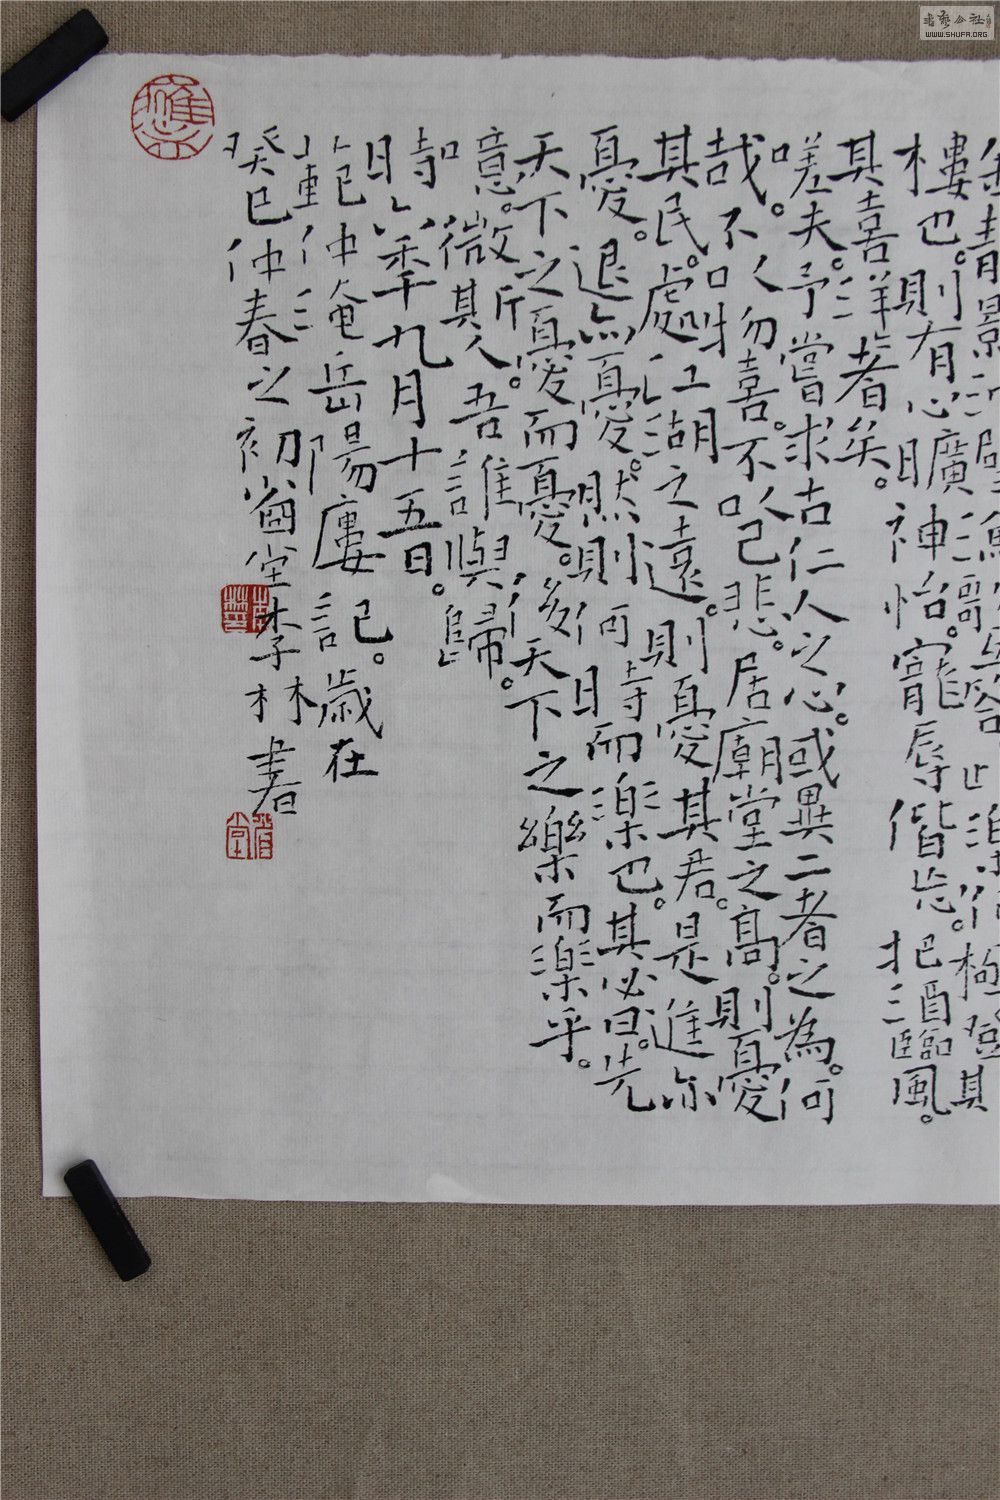 金靜影沉璧漁歌互答此樂何極登斯
樓也。則有心曠神怡。寵辱偕忘。把酒臨風。
其喜洋洋者矣。
嗟夫。予嘗求古仁人之心。或異二者之為。何
哉。不以物喜。不以己悲。居廟堂之高。則憂
其民。處江湖之遠。則憂其君。是進亦
憂。退亦憂。然則何時而樂也。其必曰。先
天下之憂而憂。後天下之樂而樂乎。
噫。微斯人吾誰與歸。
時六年九月十五日。
范仲淹岳陽樓記。歲在
癸巳仲春之初堂李林書
李林
WWW.SHUFA.ORG